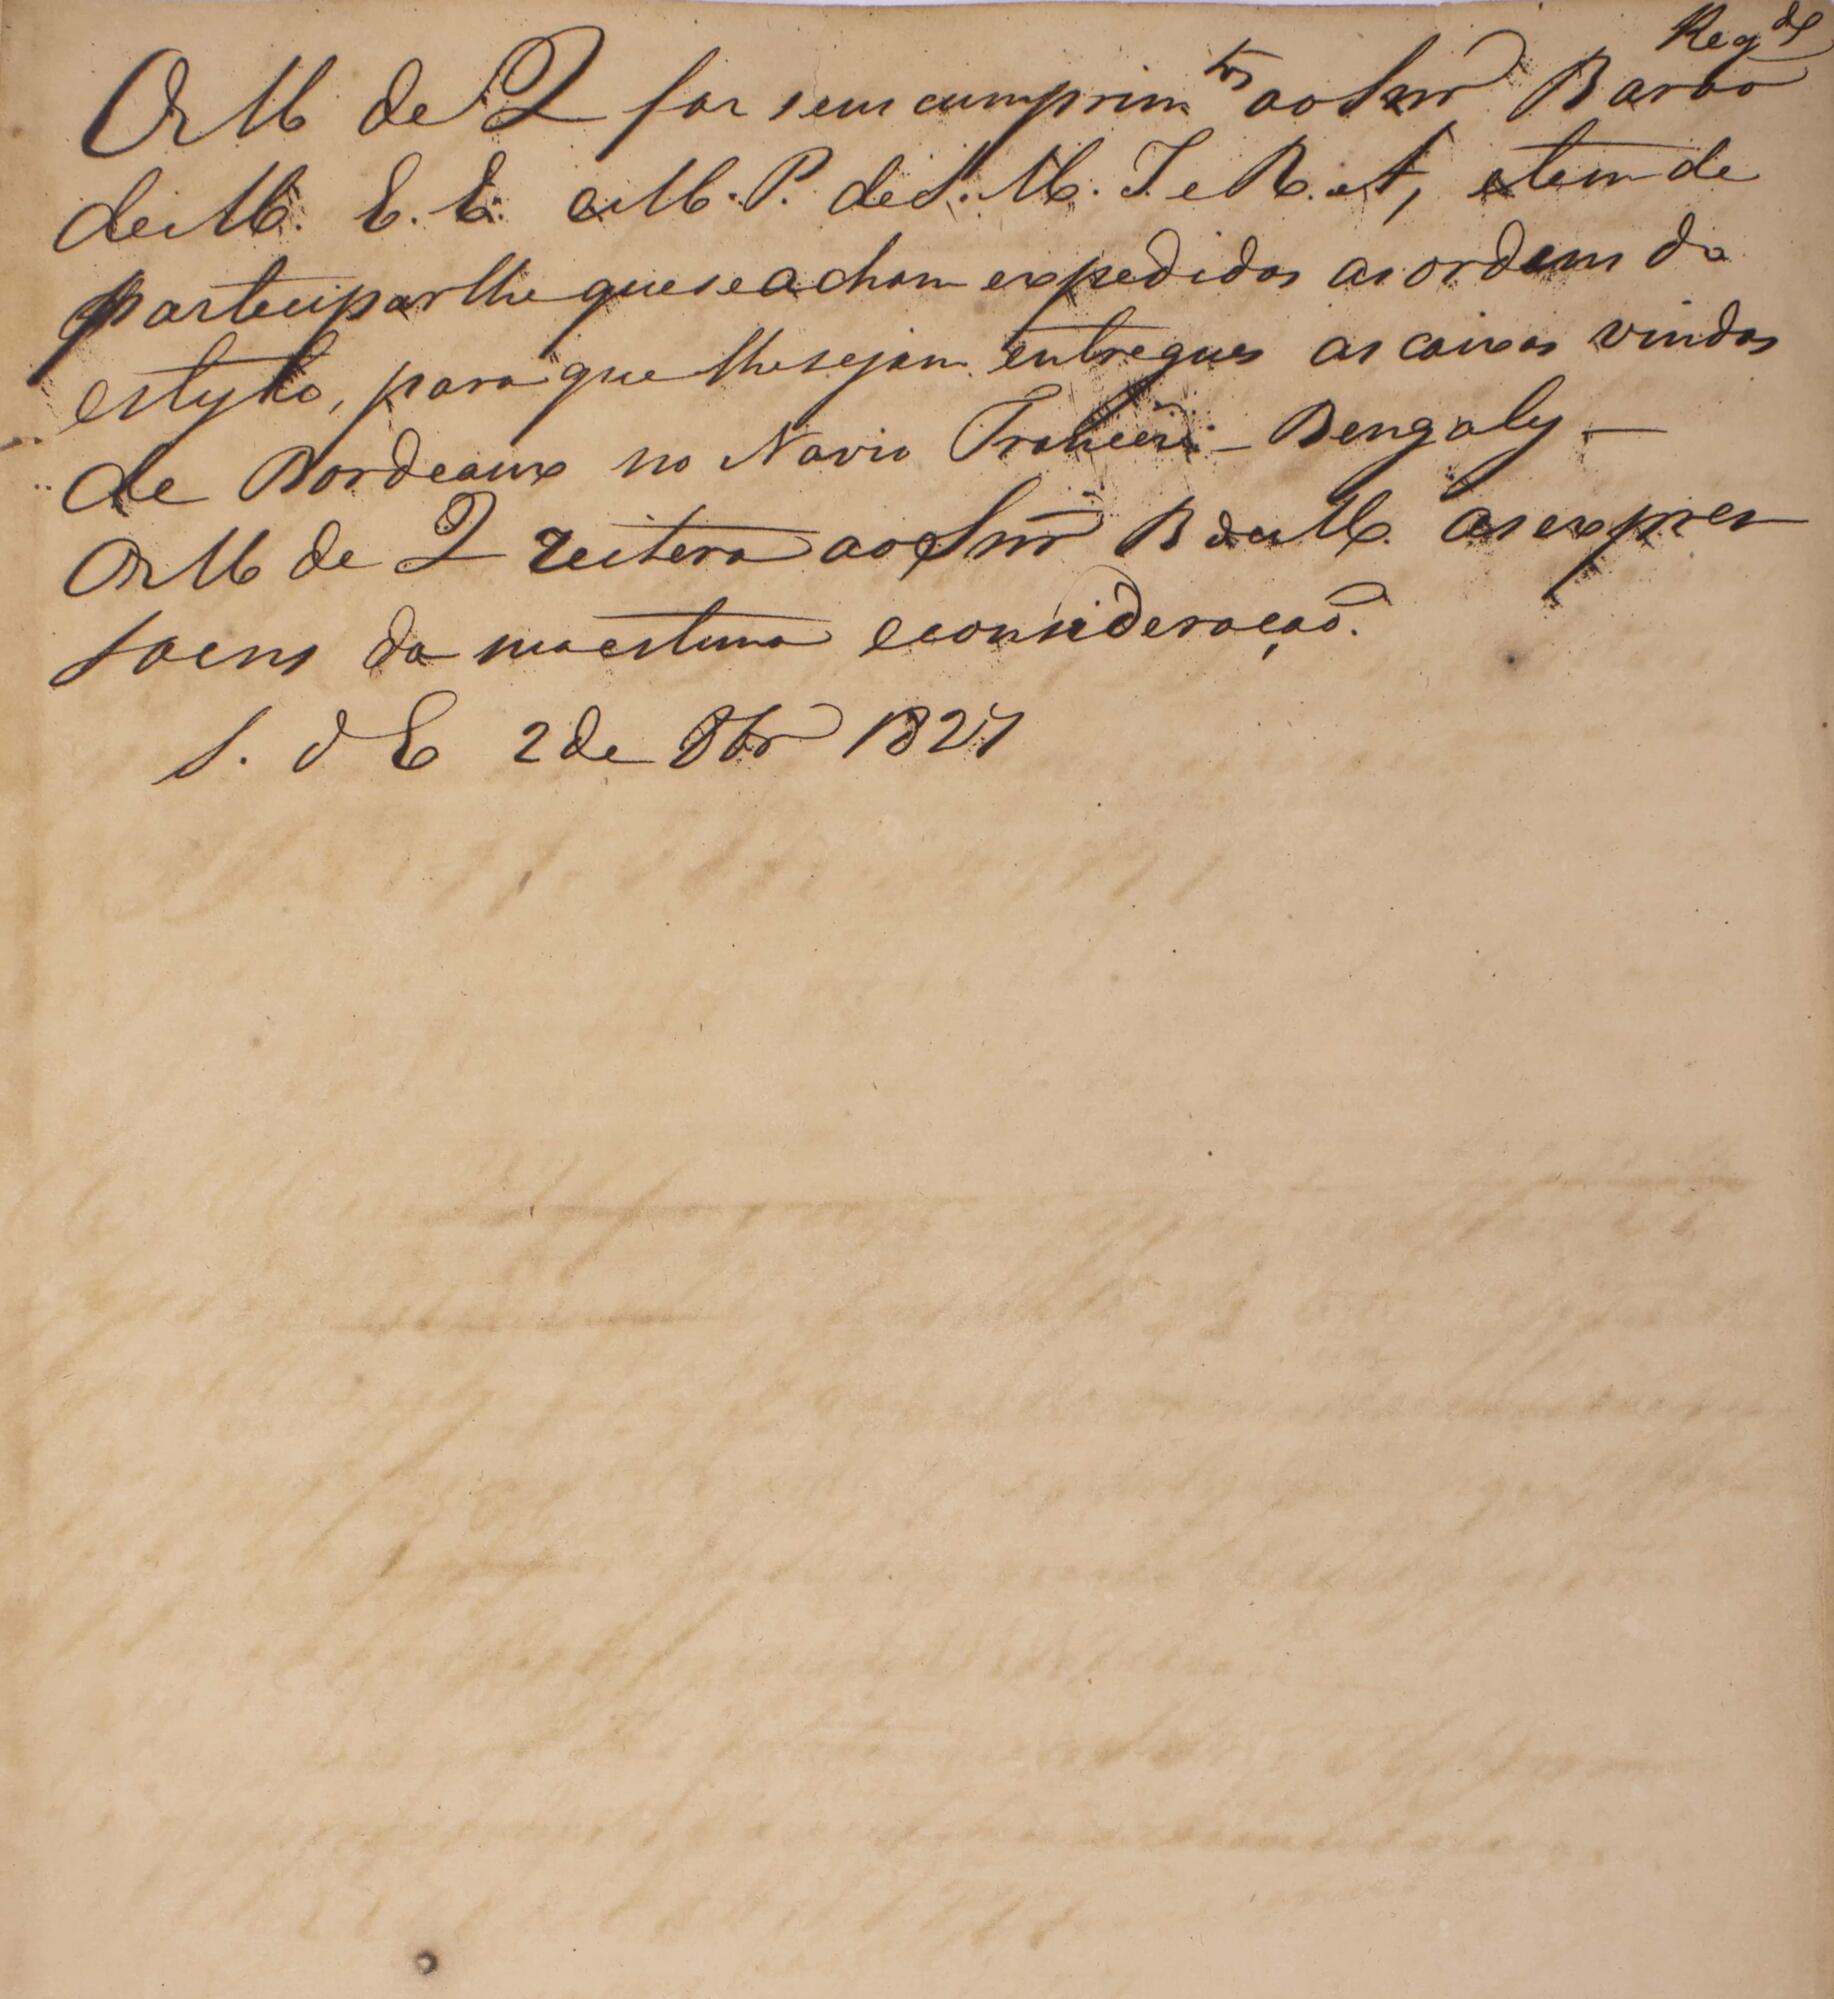 Regdo
O M de Q faz seus cumprimtos ao Snr Barão
de M. E. E. e M. P. de S. M. I. e R. A, e tem de
partecipar lhe que se acham expedidas as ordens do
estylo, para que lhe sejam entregues as caixas vindas
de Bordeaux no Navio Francez - Bengaly -
O M de Q reitera ao Snr B de M. as expres
soens da sua estima e consideração.
S. d E 2 de 8br 1827